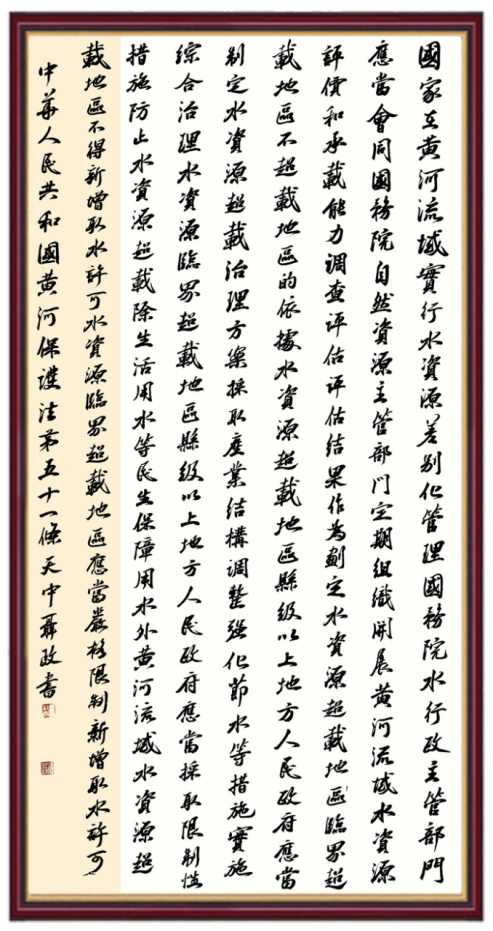 國家在黃河流域實行水資源差別化管理國務院水行政主管部門
應當會同國務院自然資源主管部門定期組織開展黃河流域水資源
評價和承載能力調查評估評估結果作為劃定水資源超載地區臨界超
載地區不超載地區的依據水資源超載地區縣級以上地方人民政府應當
制定水資源超載治理方案採取產業結構調整強化節水等措施實施
綜合治理水資源臨界超載地區縣級以上地方人民政府應當採取限制性
措施防止水資源超載除生活用水等民生保障用水外黃河流域水資源超
載地區不得新增取水許可水資源臨界超載地區應當嚴格限制新增取水許可
中華人民共和國黃河保護法第五十一條天中聶政書